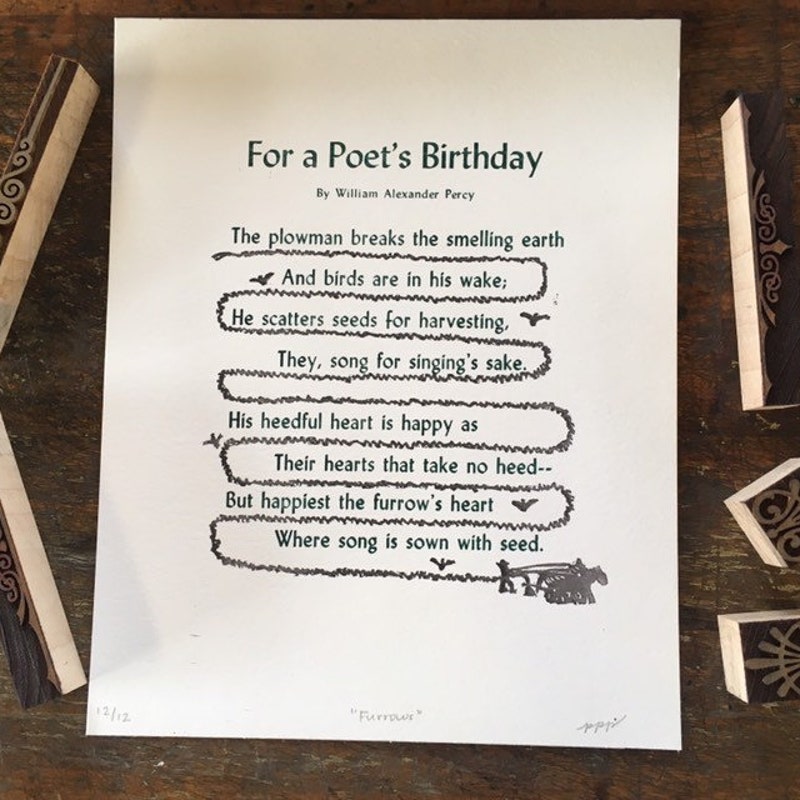 For a Poet's Birthday
By William Alexander Percy
The plowman breaks the smelling earth
And birds are in his wake;
He scatters seeds for harvesting,
They, song for singing's sake.
His heedful heart is happy as
Their hearts that take no heed--
But happiest the furrow's heart
Where song is sown with seed.
12/12
"Furrows"